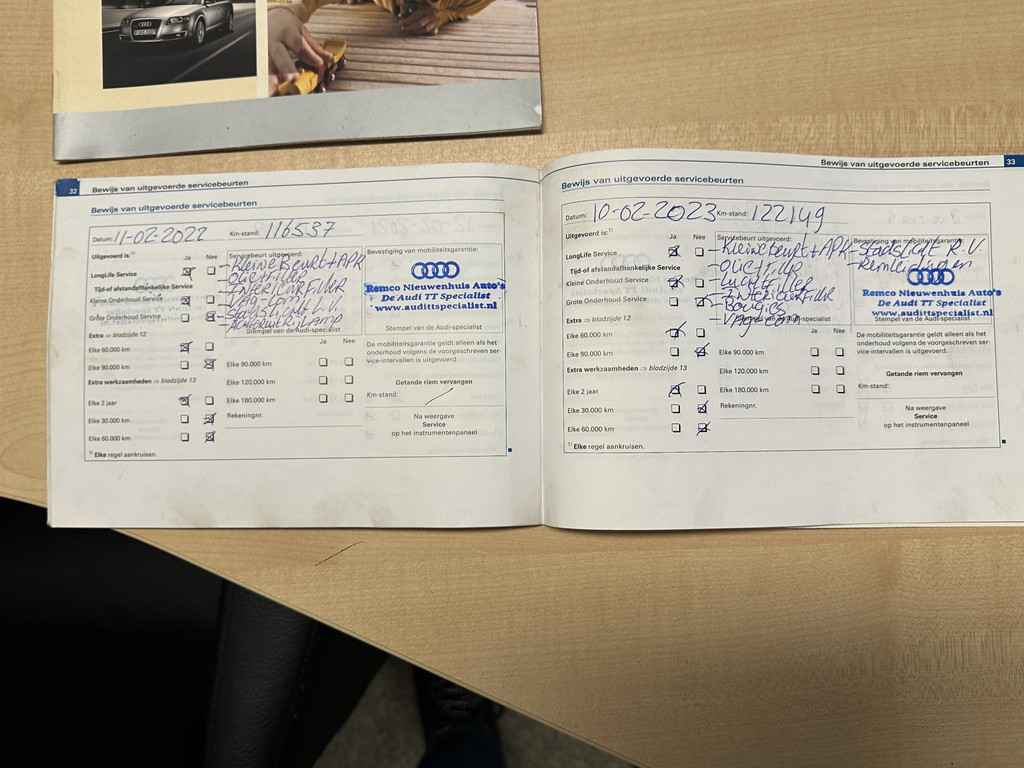 32 Bewijs van uitgevoerde servicebeurten
Bewijs van uitgevoerde servicebeurten
Datum: 11-02-2022 Km-stand: 116537
Uitgevoerd is:¹⁾
Ja Nee
Servicebeurt uitgevoerd:
Bevestiging van mobiliteitsgarantie:
LongLife Service
Tijd-of afstandafhankelijke Service
Kleine Onderhoud Service
Grote Onderhoud Service
- Kleine Beurt + APK
- Oliefilter
- Interieurfilter
Remco Nieuwenhuis Auto's
De Audi TT Specialist
www.audittspecialist.nl
Stempel van de Audi-specialist
Extra ⇒ blodzijde 12
Elke 60.000 km
Elke 90.000 km
Extra werkzaamheden ⇒ blodzijde 13
Elke 2 jaar
Elke 30.000 km
Elke 60.000 km
Ja Nee
Elke 90.000 km
Elke 120.000 km
Elke 180.000 km
Rekeningnr.
De mobiliteitsgarantie geldt alleen als het
onderhoud volgens de voorgeschreven ser-
vice-intervallen is uitgevoerd.
Getande riem vervangen
Km-stand:
Na weergave
Service
op het instrumentenpaneel
¹⁾ Elke regel aankruisen.
Bewijs van uitgevoerde servicebeurten 33
Bewijs van uitgevoerde servicebeurten
Datum: 10-02-2023 Km-stand: 122149
Uitgevoerd is:¹⁾
Ja Nee
Servicebeurt uitgevoerd:
Bevestiging van mobiliteitsgarantie:
LongLife Service
Tijd-of afstandafhankelijke Service
Kleine Onderhoud Service
Grote Onderhoud Service
- Kleine beurt + APK
- Oliefilter
- Luchtfilter
- Interieurfilter
- Bougies
- Stadslicht R.V.
Remco Nieuwenhuis Auto's
De Audi TT Specialist
www.audittspecialist.nl
Stempel van de Audi-specialist
Extra ⇒ blodzijde 12
Elke 60.000 km
Elke 90.000 km
Extra werkzaamheden ⇒ blodzijde 13
Elke 2 jaar
Elke 30.000 km
Elke 60.000 km
Ja Nee
Elke 90.000 km
Elke 120.000 km
Elke 180.000 km
Rekeningnr.
De mobiliteitsgarantie geldt alleen als het
onderhoud volgens de voorgeschreven ser-
vice-intervallen is uitgevoerd.
Getande riem vervangen
Km-stand:
Na weergave
Service
op het instrumentenpaneel
¹⁾ Elke regel aankruisen.